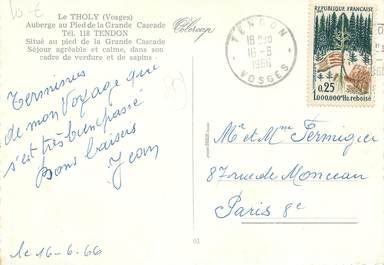 Le THOLY (Vosges)
Auberge au Pied de la Grande Cascade
Tél. 118 TENDON
Situé au pied de la Grande Cascade
Séjour agréable et calme, dans son
cadre de verdure et de sapins.
Colorcop
TENDON
16-6
1966
VOSGES
REPUBLIQUE FRANÇAISE
0,25
1.000.000e Ha. reboisé
Terminus
de mon voyage qui
s'est très bien passé
Bons baisers
Jean
le 16-6-66
Mr et Mme Fermigier
87 rue de Monceau
Paris 8e